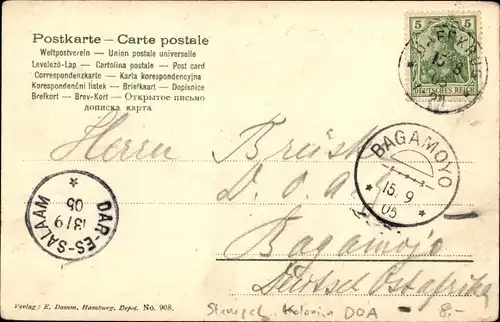 Postkarte — Carte postale
Weltpostverein — Union postale universelle
Levelező-Lap — Cartolina postale — Post card
Correspondenzkarte — Karta korespondencyjna
Korespondenční lístek — Briefkaart — Dopisnice
Brefkort — Brev-Kort — Открытое письмо
дописна карта
5 5
DEUTSCHES REICH
Herrn
D. O. A.
Bagamojo
Deutsch Ostafrika
BAGAMOYO
15. 9
05
DAR-ES-SALAAM
13/9
05
Verlag: E. Damm, Hamburg, Depot. No. 908.
Stempel Kolonien DOA 8,-